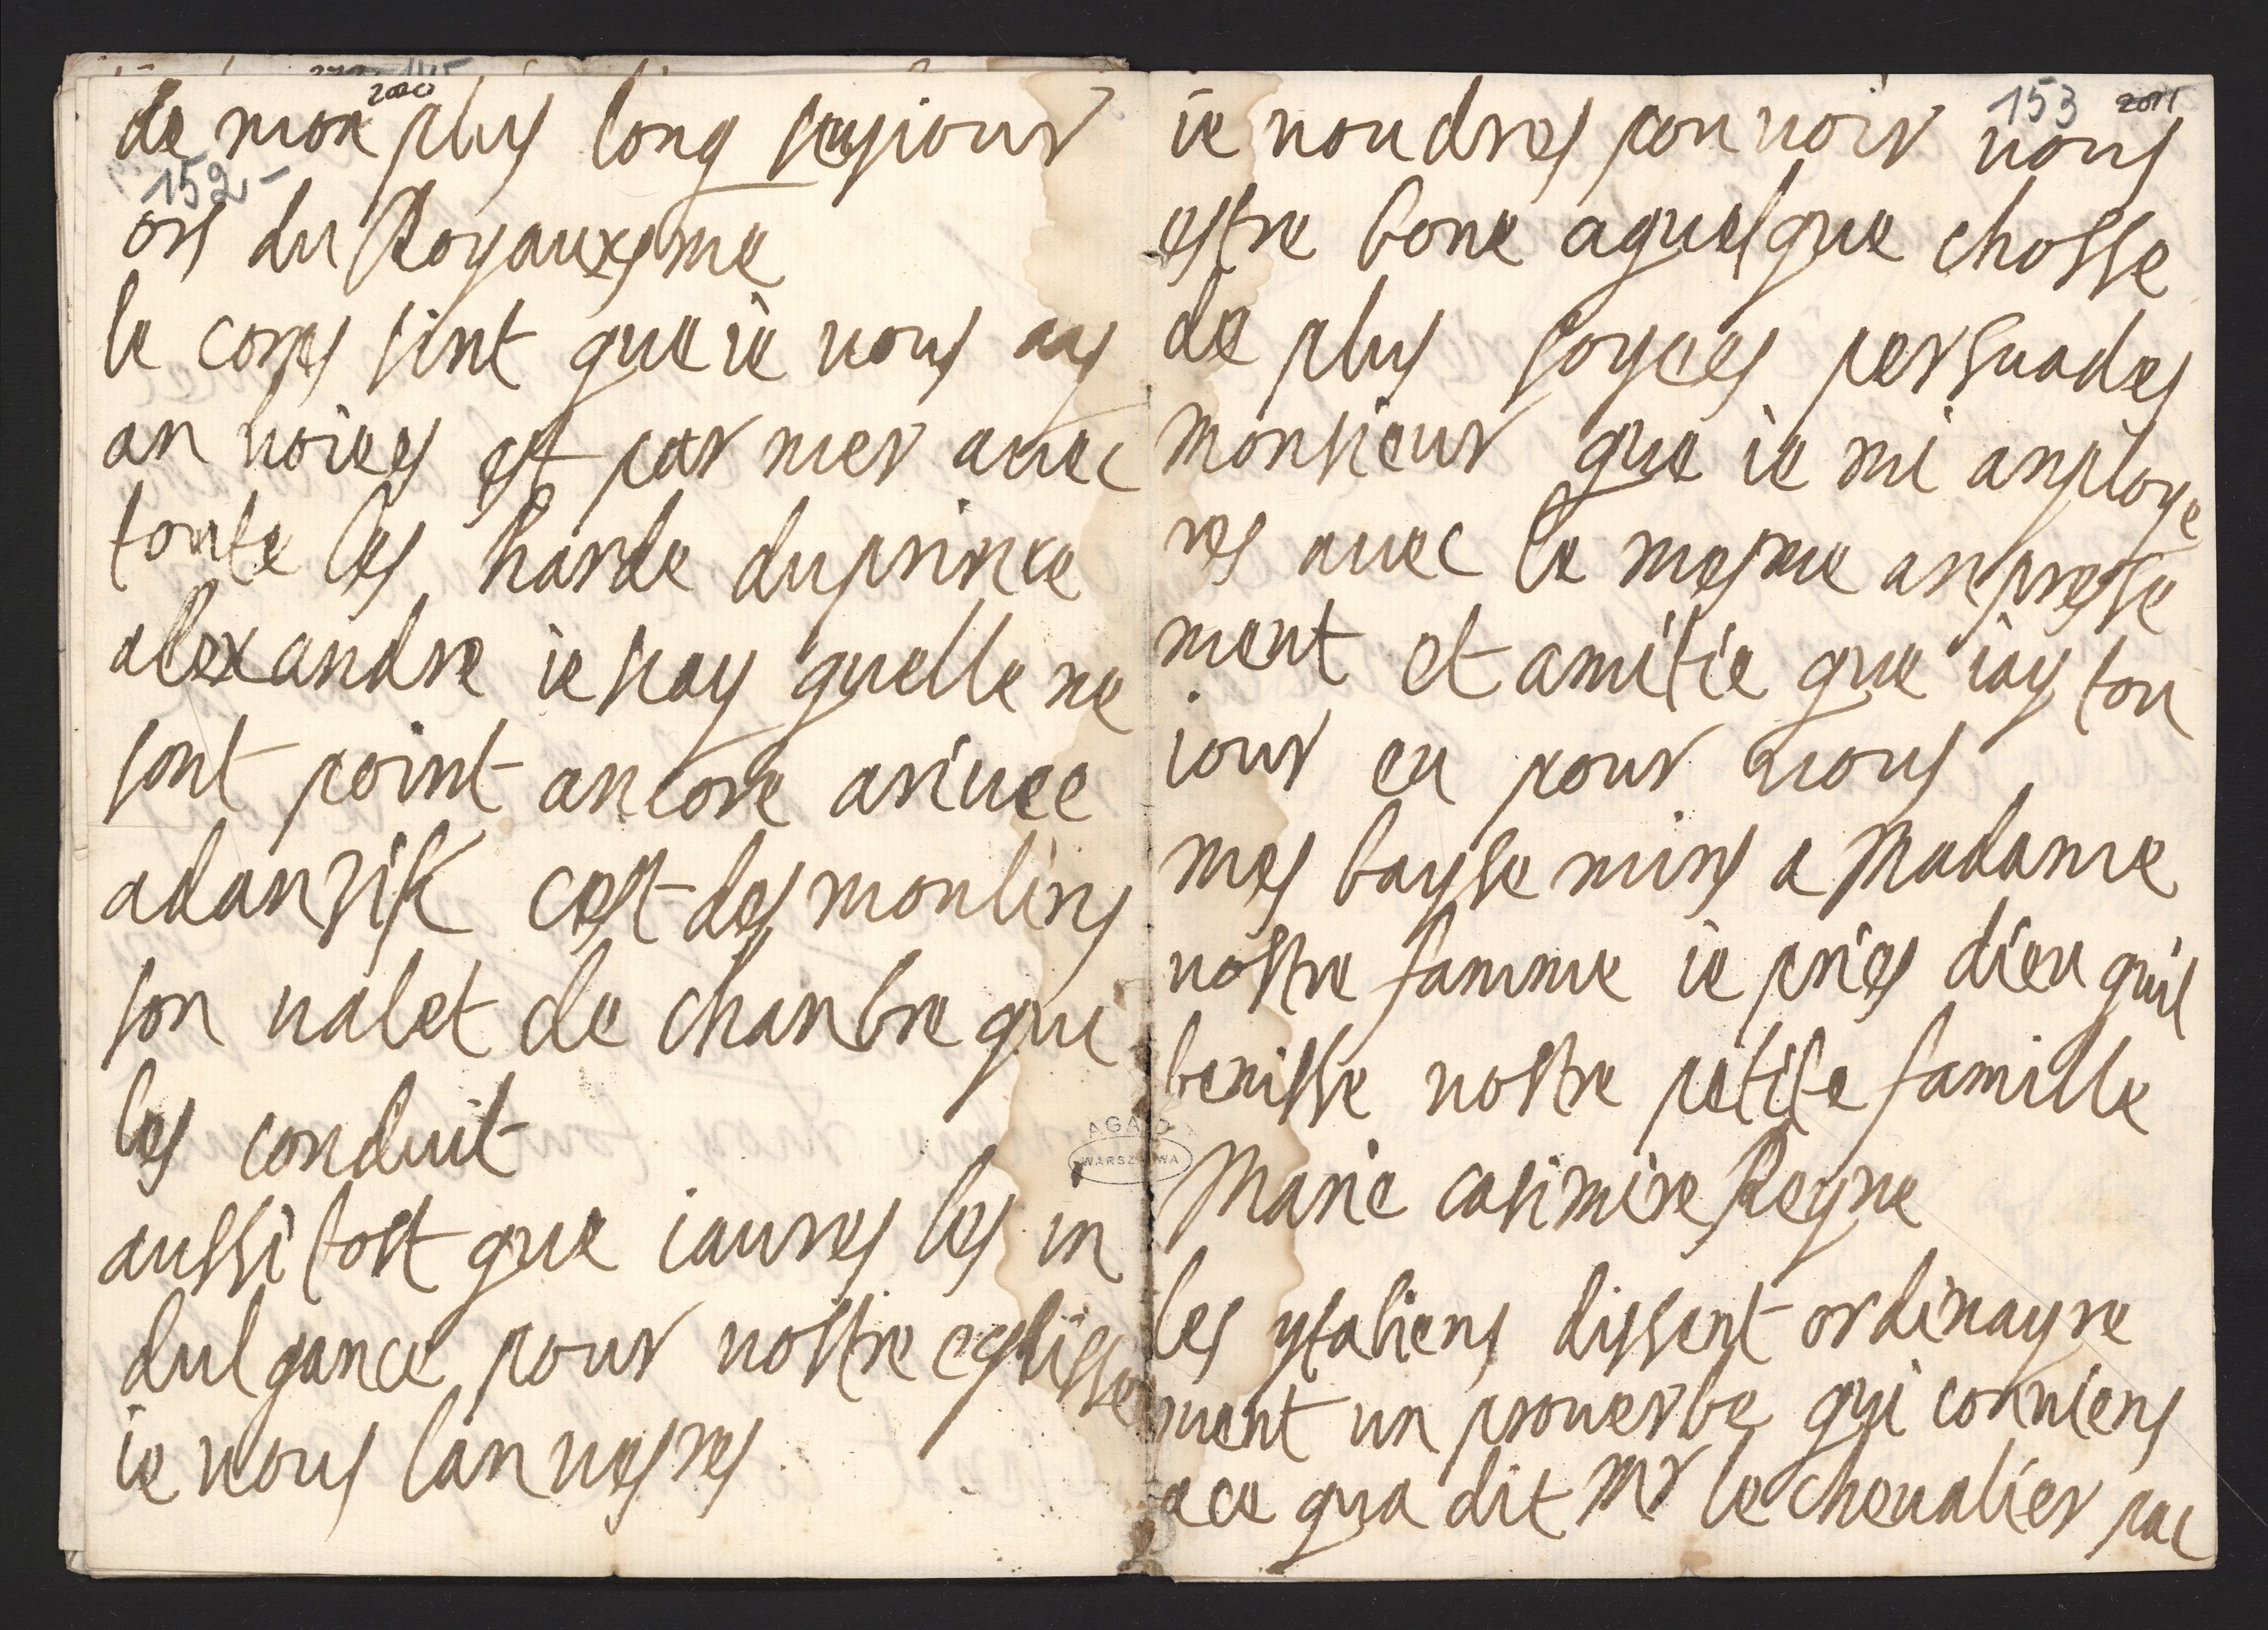 2010
de mon plus long seyjour
152-
ors du Royauxsme
le corps sint que ie vous ay
an noiees est par mer avec
toute les harde du prince
alexandre ie say quelle ne
sont point ancore arivee
a danzik cest des moulins
son valet de chanbre qui
les conduit
aussi tost que iaures les in
dulgance pour vostre eglisse
ie vous lan veres
153 2011
ie voudres pouvoir vous
estre bone a quelque chosse
de plus soyees persuades
monsieur que ie mi anploye
res avec le mesme anpresse
ment et amitie que iay tou
iour eu pour vous
mes bayse mins a Madame
vostre famme ie pries dieu quil
benisse vostre petite famille
Marie casimire Reyne
les ytaliens dissent ordinayre
ment un proverbe qui conviens
a ce qua dit Mr le chevalier pac
AGAD
WARSZAWA